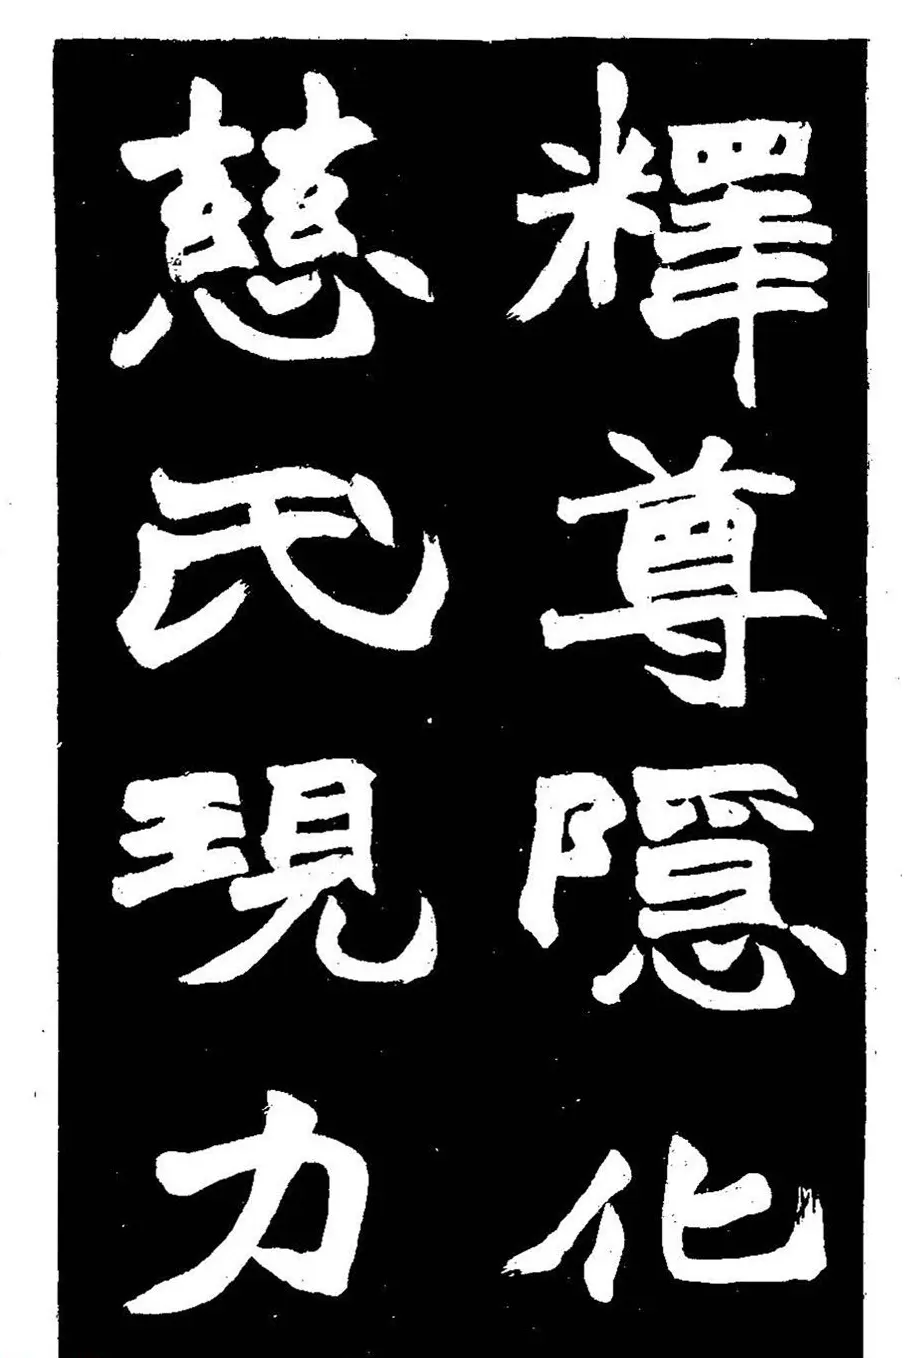 釋尊隱化
慈氏現力